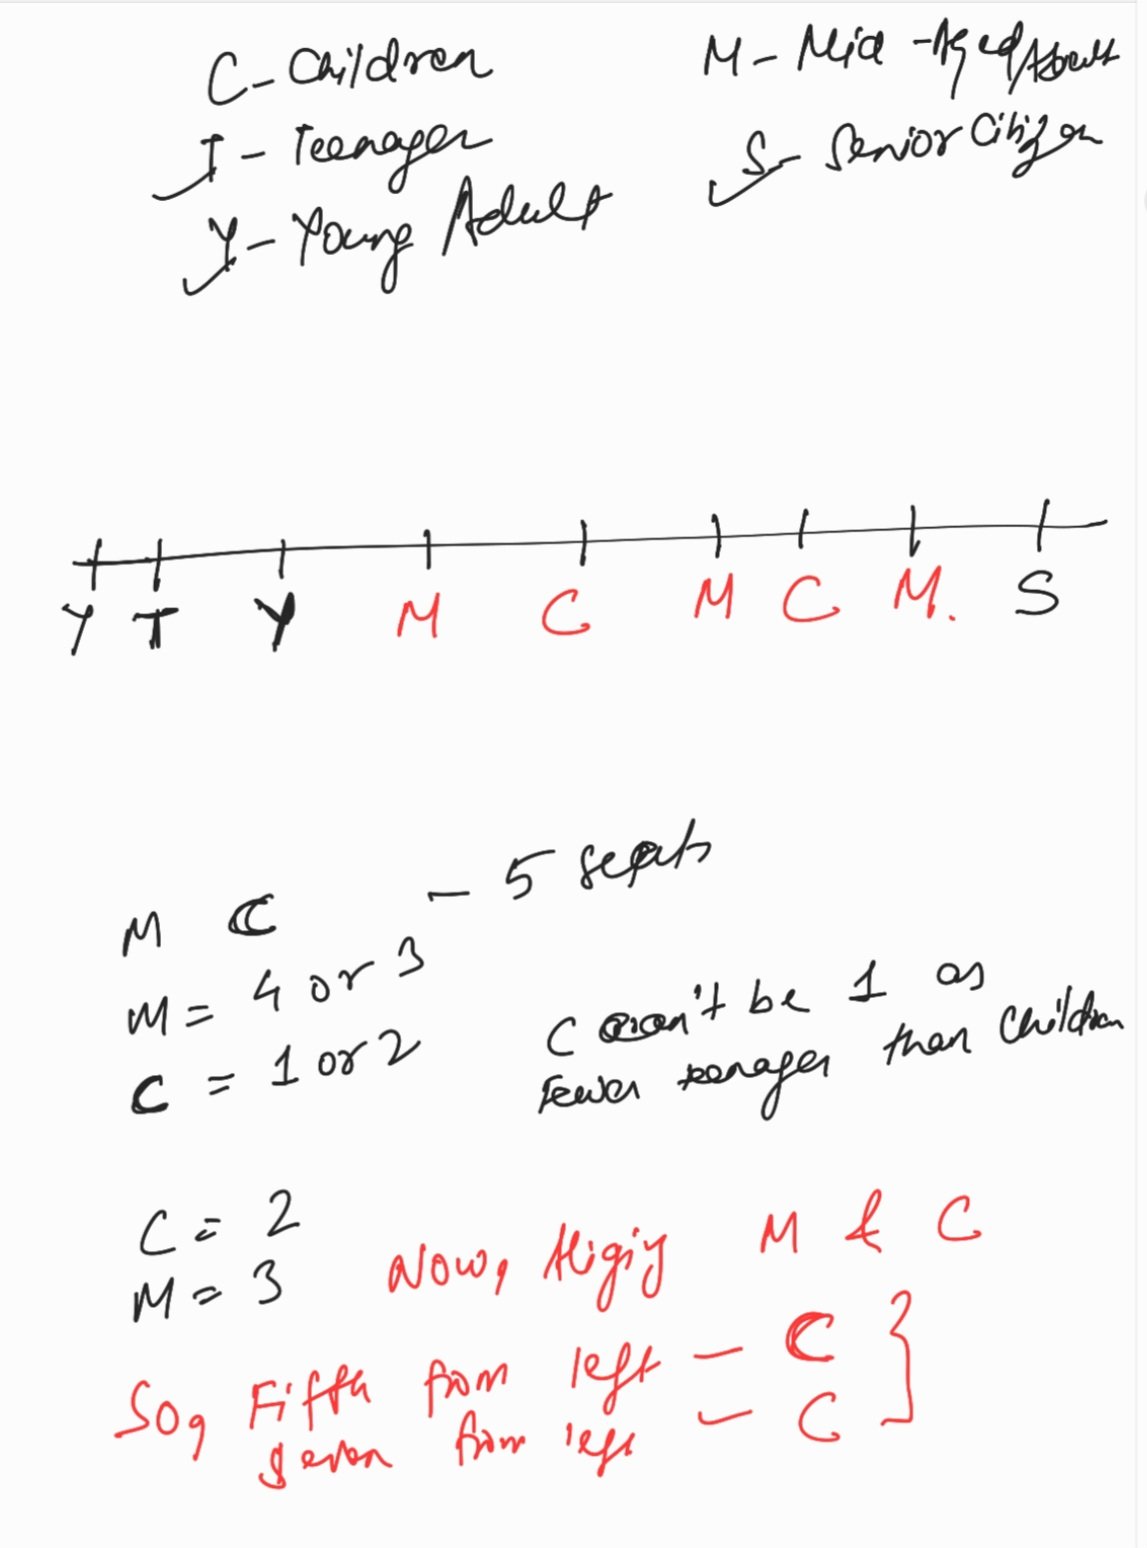 C - Children
T - Teenager
Y - Young Adult
M - Mid - Aged/
S - Senior Citizen
Y T Y M C M C M. S
M C - 5 seats
M = 4 or 3
C = 1 or 2
C can't be 1 as
Fewer teenager than children
C = 2
M = 3
Now, M & C
So, Fifth from left - C
seven from left - C